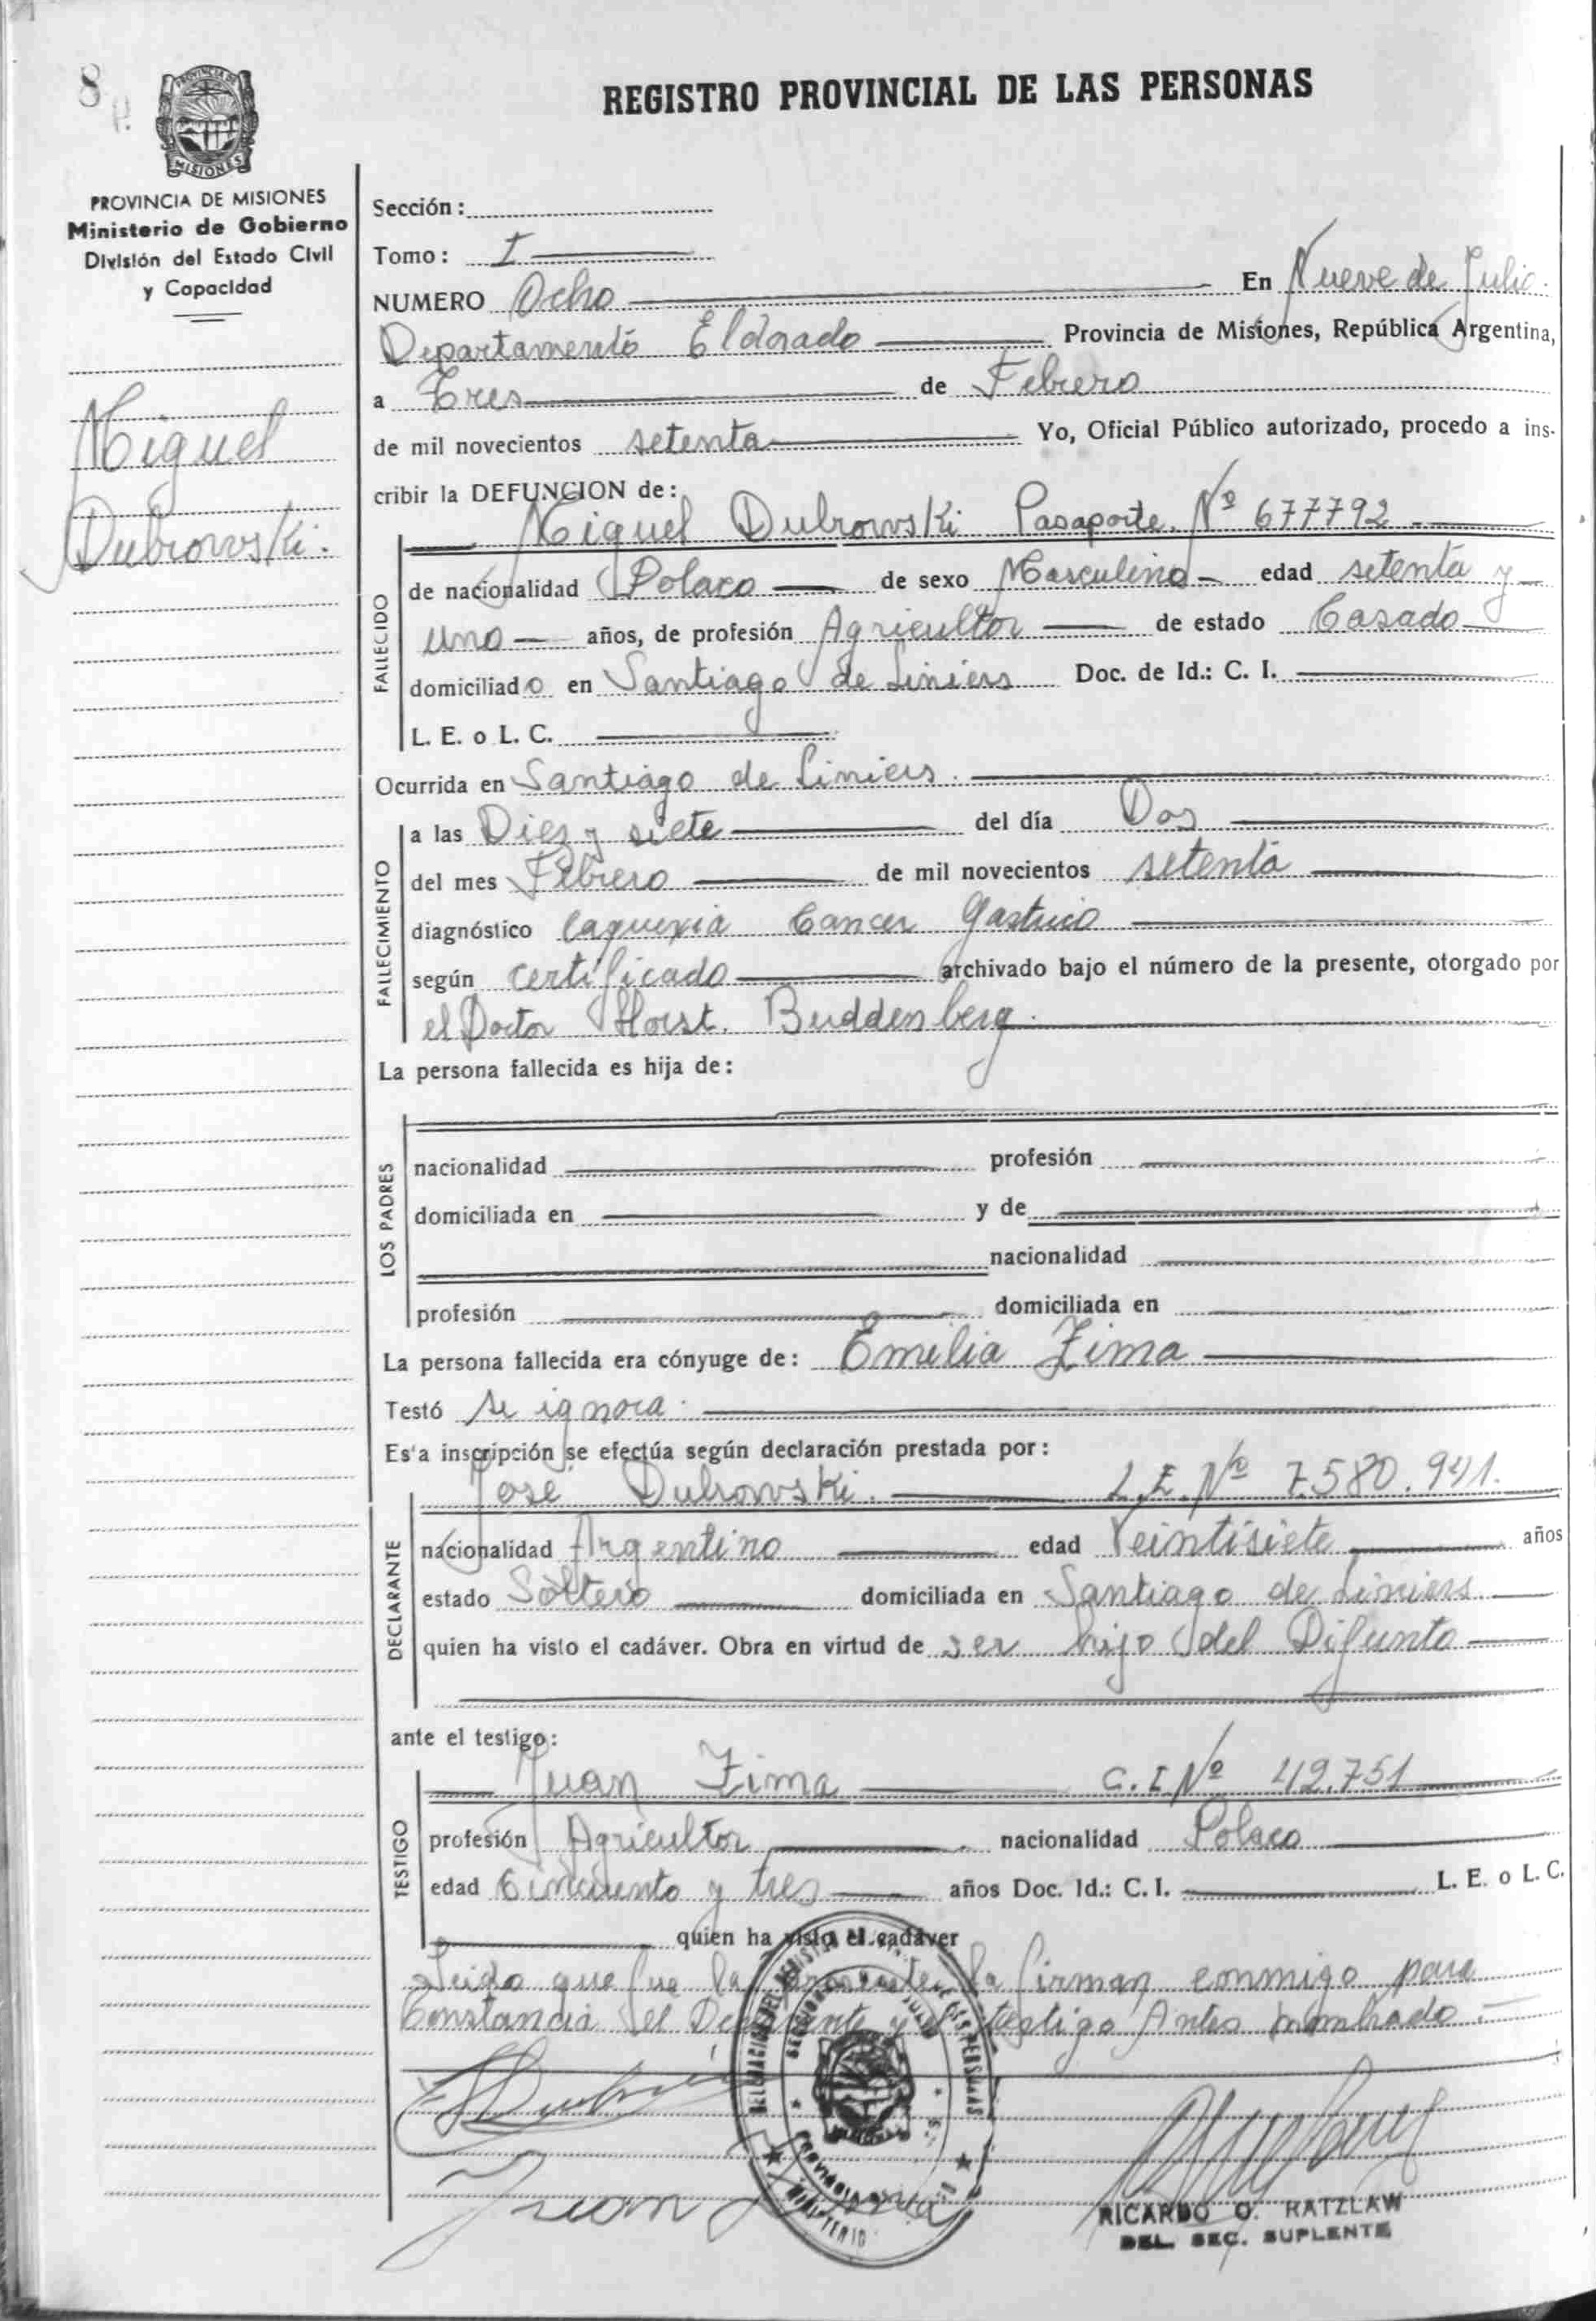 8
PROVINCIA DE
MISIONES
REGISTRO PROVINCIAL DE LAS PERSONAS
PROVINCIA DE MISIONES
Ministerio de Gobierno
División del Estado Civil
y Capacidad
Miguel
Dubrowski.
Sección:
Tomo: I
NUMERO Ocho En Nueve de Julio.
Departamento Eldorado Provincia de Misiones, República Argentina,
a Tres de Febrero
de mil novecientos setenta Yo, Oficial Público autorizado, procedo a ins-
cribir la DEFUNCION de:
Miguel Dubrowski Pasaporte. Nº 677792
FALLECIDO
de nacionalidad Polaco de sexo Masculino edad setenta y
uno años, de profesión Agricultor de estado Casado
domiciliado en Santiago de Liniers Doc. de Id.: C. I.
L. E. o L. C.
Ocurrida en Santiago de Liniers.
FALLECIMIENTO
a las Diez y siete del día Dos
del mes Febrero de mil novecientos setenta
diagnóstico Caquexia Cancer Gastrico
según certificado archivado bajo el número de la presente, otorgado por
el Doctor Horst. Buddenberg.
La persona fallecida es hija de:
LOS PADRES
nacionalidad profesión
domiciliada en y de
nacionalidad
profesión domiciliada en
La persona fallecida era cónyuge de: Emilia Zima
Testó se ignora.
Es'a inscripción se efectúa según declaración prestada por:
José Dubrowski. L.E. Nº 7.580.941.
DECLARANTE
nacionalidad Argentino edad Veintisiete años
estado Soltero domiciliada en Santiago de Liniers
quien ha visto el cadáver. Obra en virtud de ser hijo del Difunto
ante el testigo:
Juan Zima C.I. Nº 42.751
TESTIGO
profesión Agricultor nacionalidad Polaco
edad Cincuento y tres años Doc. Id.: C. I. L. E. o L. C.
quien ha visto el cadáver
Leido que fue la presente, la firman conmigo para
Constancia el Declarante y el testigo Antes nombrado.
Juan Zima
RICARDO O. RATZLAW
DEL. SEC. SUPLENTE